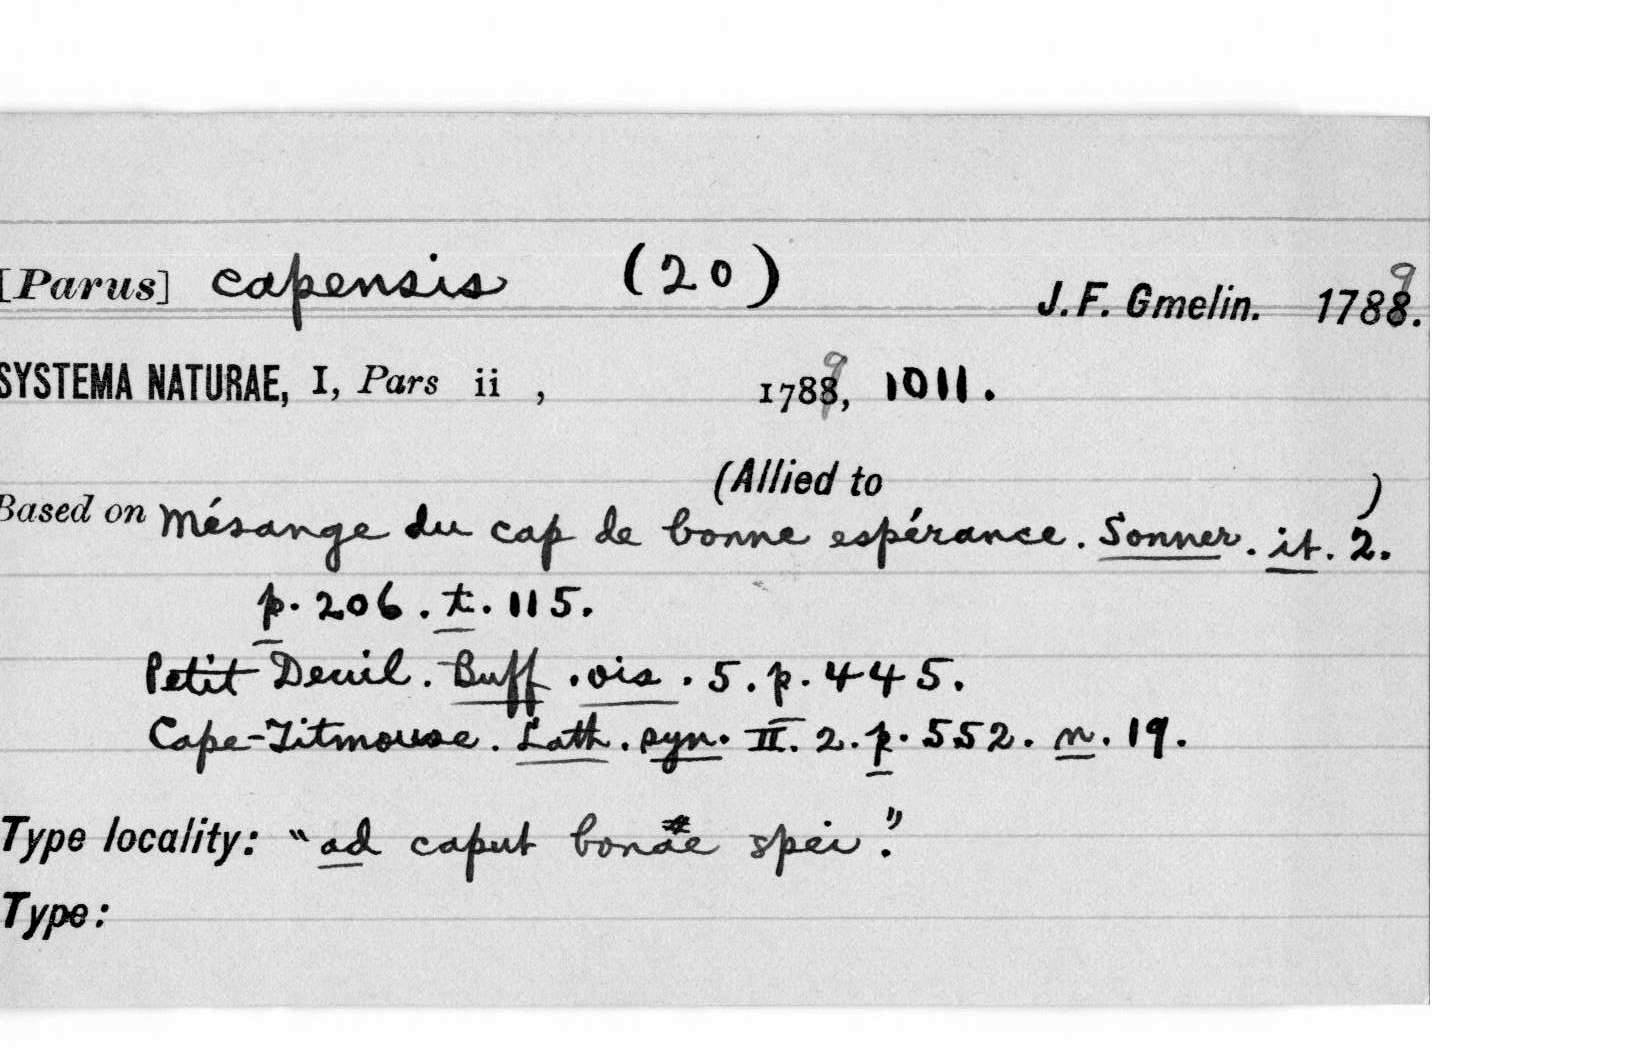 [Parus] capensis (20) J. F. Gmelin. 1789.
SYSTEMA NATURAE, I, Pars ii , 1789, 1011.
(Allied to )
Based on Mésange du cap de bonne espérance. Sonner. it. 2.
p. 206. t. 115.
Petit Deuil. Buff. ois. 5. p. 445.
Cape-Titmouse. Lath. syn. II. 2. p. 552. n. 19.
Type locality: "ad caput bonae spei."
Type: